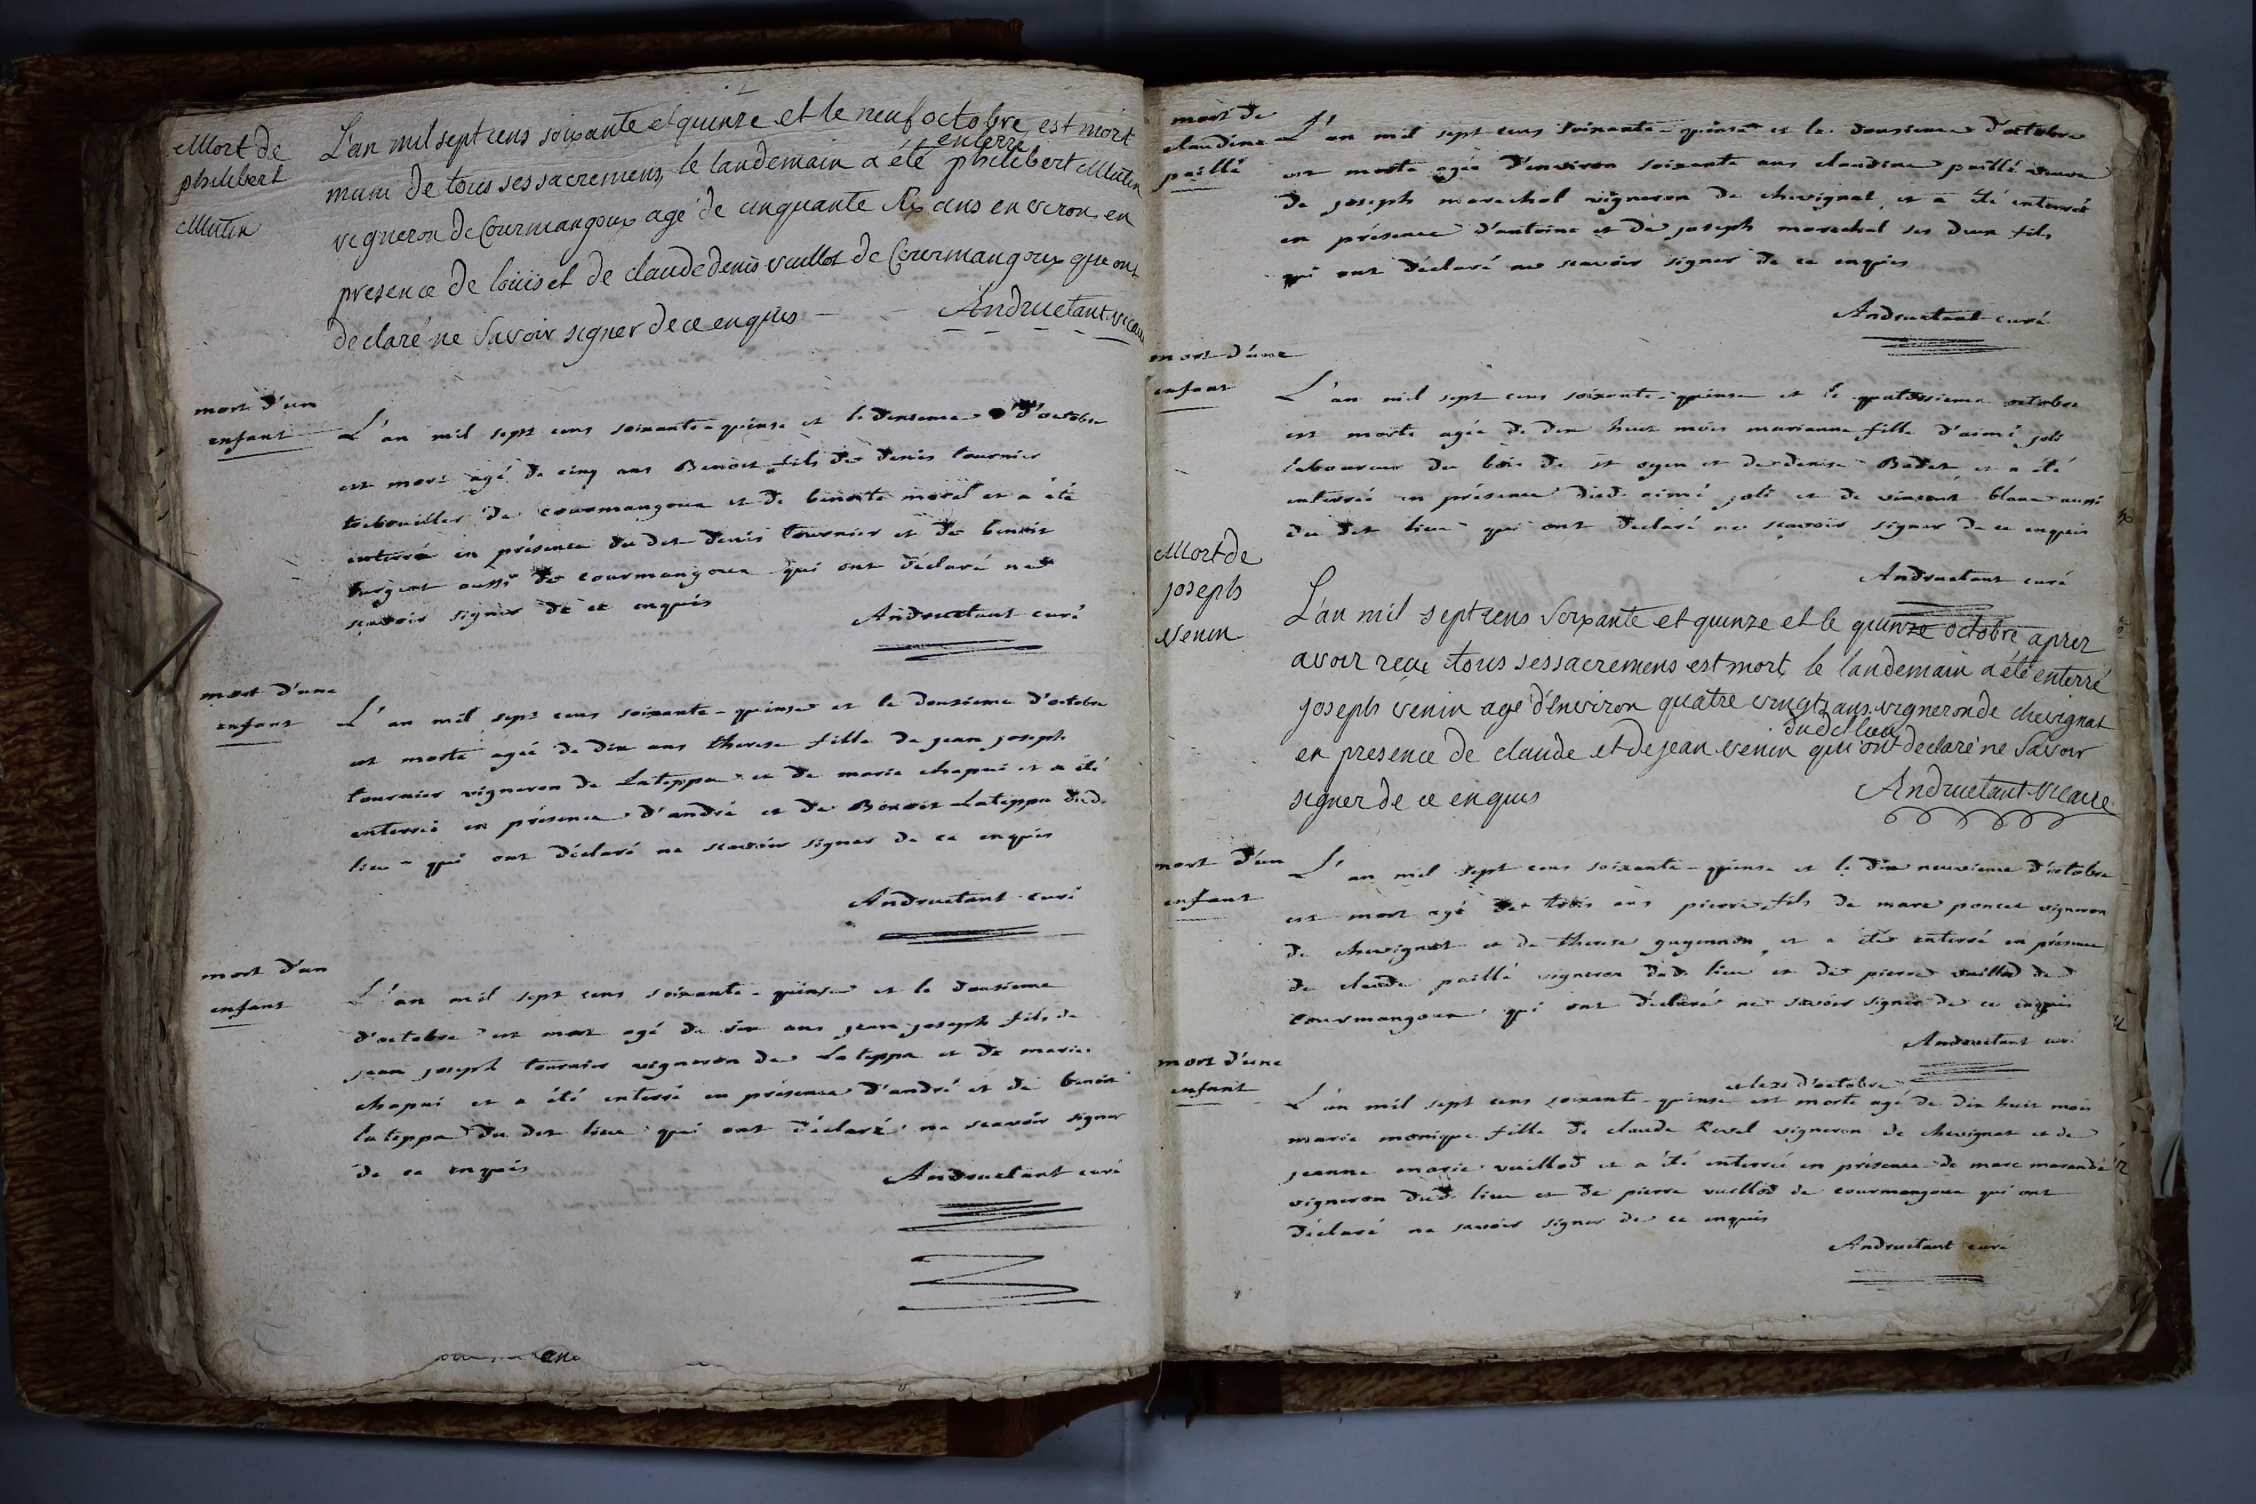 Mort de
philibert
Mutin
L'an mil sept cens soixante et quinze et le neuf octobre est mort
enterré
muni de tous ses sacremens, le landemain a été philibert Mutin
vigneron de Courmangoux agé de cinquante six ans environ en
presence de loüis et de claude denis vuillot de Courmangoux qui ont
declaré ne savoir signer de ce enquis Andruetant vicaire
mort d'un
enfant
L'an mil sept cens soixante-quinse et le d'octobre
est mort agé de cinq ans Benoit fils de denis tournier
de courmangoux et de benoite morel et a été
enterré en présence du dit denis tournier et de benoit
aussi de courmangoux qui ont déclaré ne
scavoir signer de ce enquis Andruetant curé
mort d'une
enfant
L'an mil sept cens soixante-quinse et le dousieme d'octobre
est morte agée de dix ans therese fille de jean joseph
tournier vigneron de Lateppe et de marie chapui et a été
enterrée en présence d'andré et de Benoit Lateppe dud.
lieu qui ont déclaré ne scavoir signer de ce enquis
Andruetant curé
mort d'un
enfant
L'an mil sept cens soixante-quinse et le dousieme
d'octobre est mort agé de six ans jean joseph fils de
jean joseph tournier vigneron de Lateppe et de marie
chapui et a été enterré en présence d'andré et de benoit
lateppe du dit lieu qui ont déclaré ne scavoir signer
de ce enquis
Andruetant curé
mort de
claudine
paillé
L'an mil sept cens soixante-quinse et le dousieme d'octobre
est morte agée d'environ soixante ans claudine paillé veuve
de joseph marechal vigneron de chevignat et a été enterrée
en présence d'antoine et de joseph marechal ses deux fils
qui ont déclaré ne scavoir signer de ce enquis
Andruetant curé
mort d'une
enfant
L'an mil sept cens soixante-quinse et le quatorsieme octobre
est morte agée de dix huit mois marianne fille d'aimé joli
laboureur du bois de st oyen et de denise Badet et a été
enterrée en présence dud. aimé joli et de vincent blanc aussi
du dit lieu qui ont declaré ne scavoir signer de ce enquis
Andruetant curé
Mort de
joseph
Venin
L'an mil sept cens soixante et quinze et le quinze octobre aprez
avoir reçu tous ses sacremens est mort, le landemain a été enterré
joseph venin agé d'environ quatre vingts ans vigneron de chevignat
dudit lieu
en presence de claude et de jean venin qui ont declaré ne savoir
signer de ce enquis Andruetant vicaire
mort d'un
enfant
L'an mil sept cens soixante-quinse et le dix neuvieme d'octobre
est mort agé de trois ans pierre fils de marc poncet vigneron
de chevignat et de therese guyennon et a été enterré en présence
de claude paillé vigneron dud. lieu et de pierre vuillod de
courmangoux qui ont déclaré ne savoir signer de ce enquis
Andruetant curé
mort d'une
enfant
et le 21 d'octobre
L'an mil sept cens soixante-quinse est morte agé de dix huit mois
marie monique fille de claude Revel vigneron de chevignat et de
jeanne marie vuillod et a été enterrée en présence de marc morandé
vigneron dud. lieu et de pierre vuillod de courmangoux qui ont
déclaré ne savoir signer de ce enquis
Andruetant curé